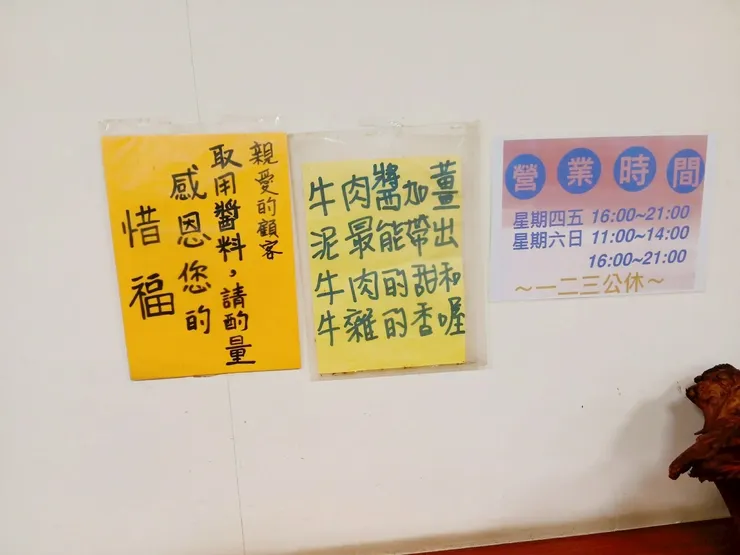 親愛的顧客
取用醬料，請酌量
感恩您的
惜福
牛肉醬加薑
泥最能帶出
牛肉的甜和
牛雜的香喔
營業時間
星期四五 16:00~21:00
星期六日 11:00~14:00
16:00~21:00
～一二三公休～